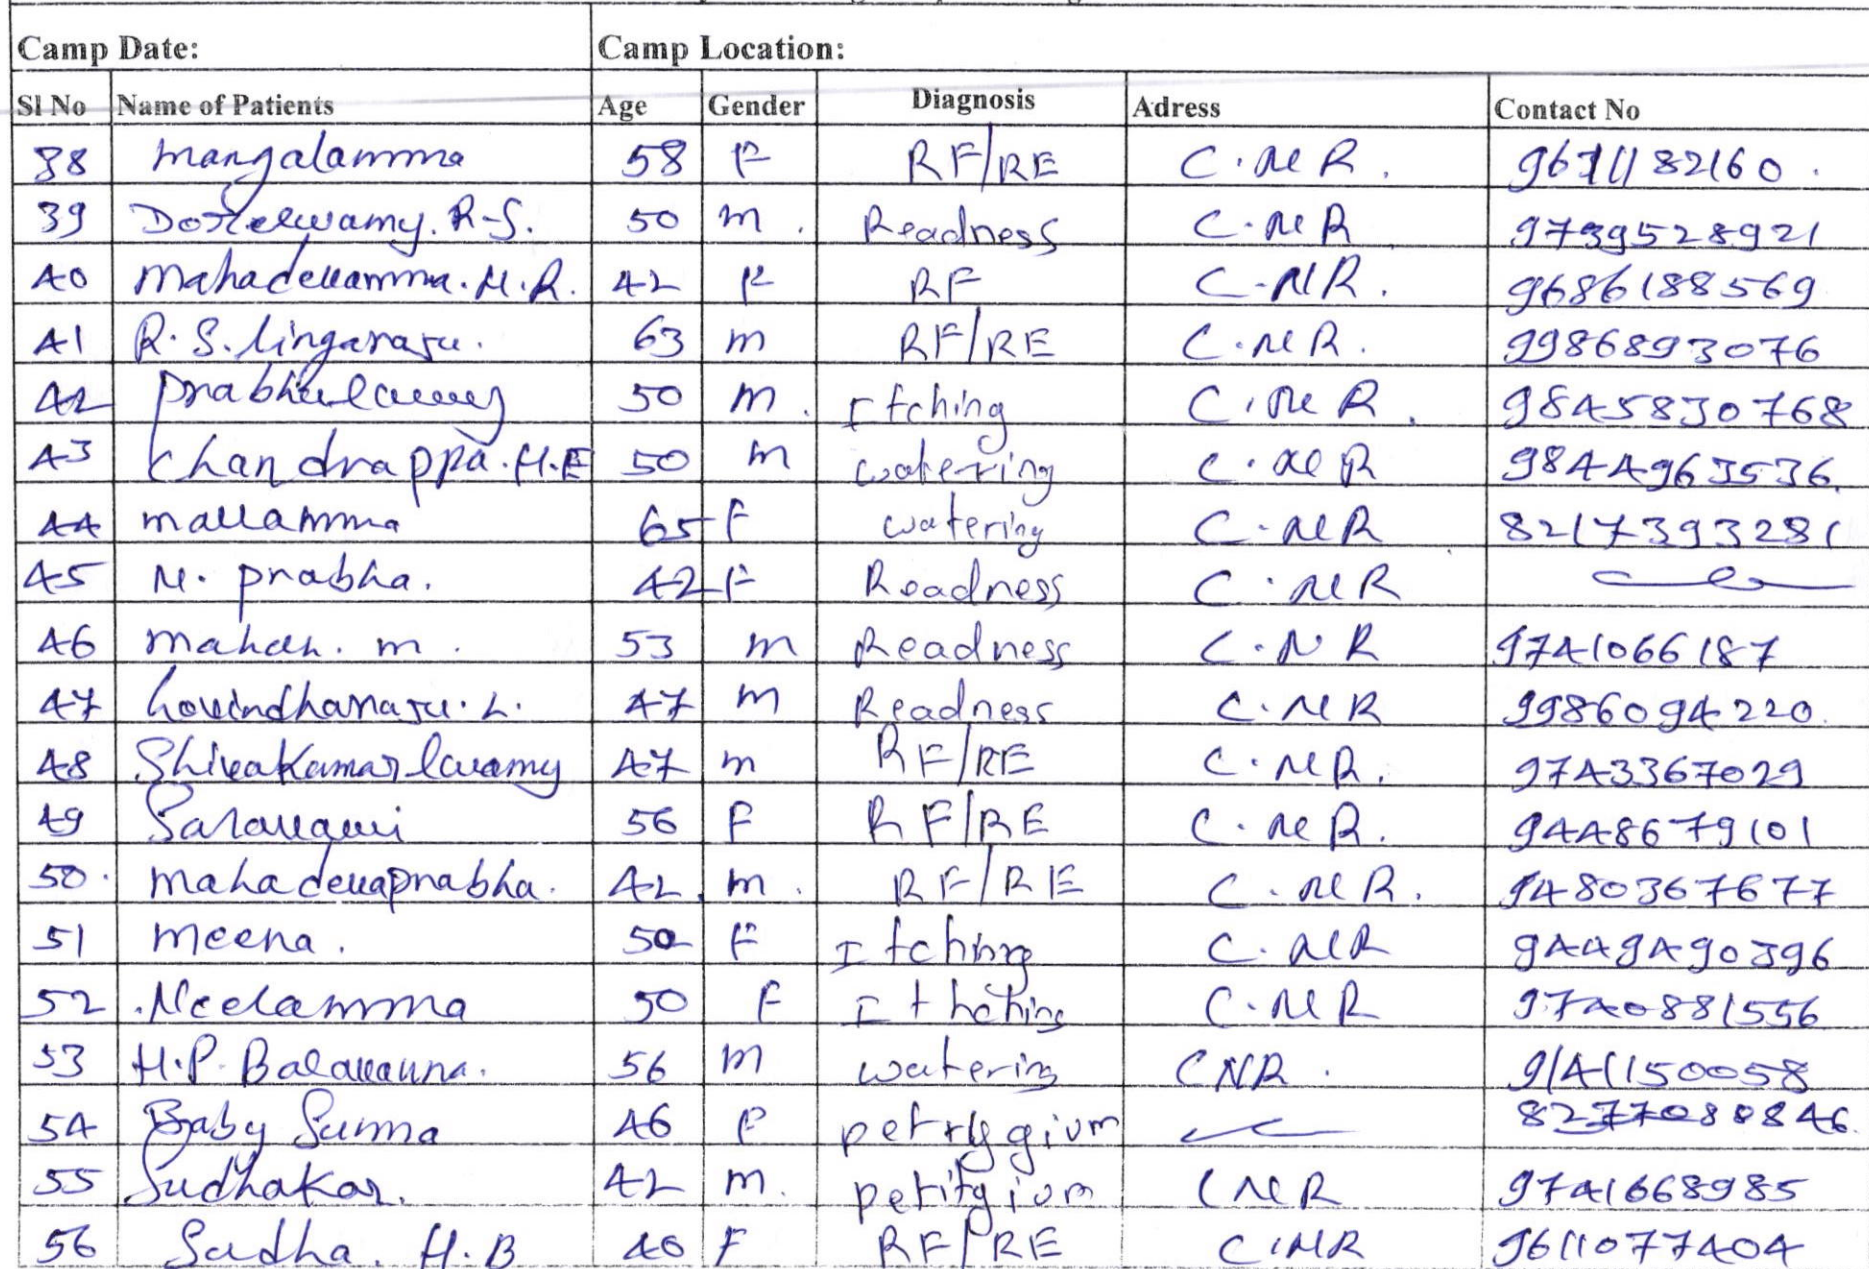 Camp Date: Camp Location:
Sl No Name of Patients Age Gender Diagnosis Adress Contact No
38 mangalamma 58 F RF/RE C.N.R.
39 R.S. 50 m. Readness C.N.R 9739528921
40 mahadevamma. M.R. 42 F RF C.N.R. 9686188569
41 R.S. lingaraju. 63 m RF/RE C.N.R. 9986893076
42 50 m. Itching C.N.R. 9845830768
43 Chandrappa. H.E 50 m watering C.N.R 9844963536
44 mallamma 65 F watering C.N.R 8217393281
45 N. prabha. 42 F Readness C.N.R
46 m. 53 m Readness C.N R 9741066187
47 Govindharaju. L. 47 m Readness C.N.R 9986094220
48 Shivakumar Swamy 47 m RF/RE C.N.R. 9743367029
49 56 F RF/RE C.N.R. 9448679101
50. mahadevaprabha. 42. m. RF/RE C.N.R. 9480367677
51 meena. 50 F Itching C.N.R 9449490396
52 Neelamma 50 F C.N.R 9740881556
53 H.P. 56 m watering CNR. 9141150058
54 Baby Suma 46 F
55 Sudhakar. 42 m. CNR 9741668985
56 Sudha. H.B 40 F RF/RE C.N.R 9611077404